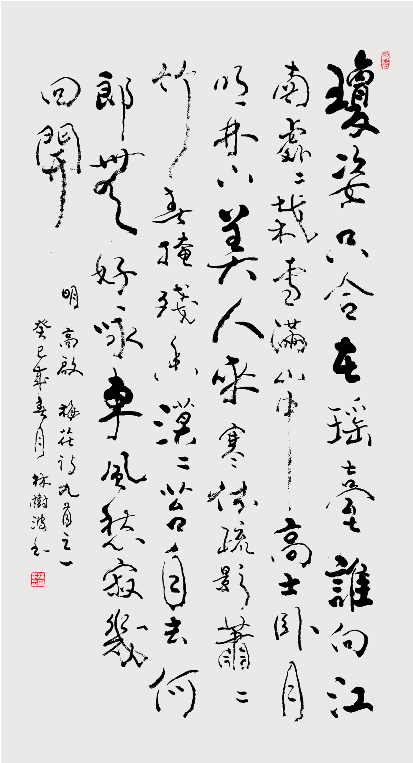 瓊姿只合在瑶臺誰向江
南處〻栽雪滿山中高士卧月
明林下美人来寒依疏影蕭〻
竹春掩殘香漠〻苔自去何
郎無好咏東風愁寂幾
回開
明 高啟 梅花詩九首之一
癸巳年春月 林樹波书